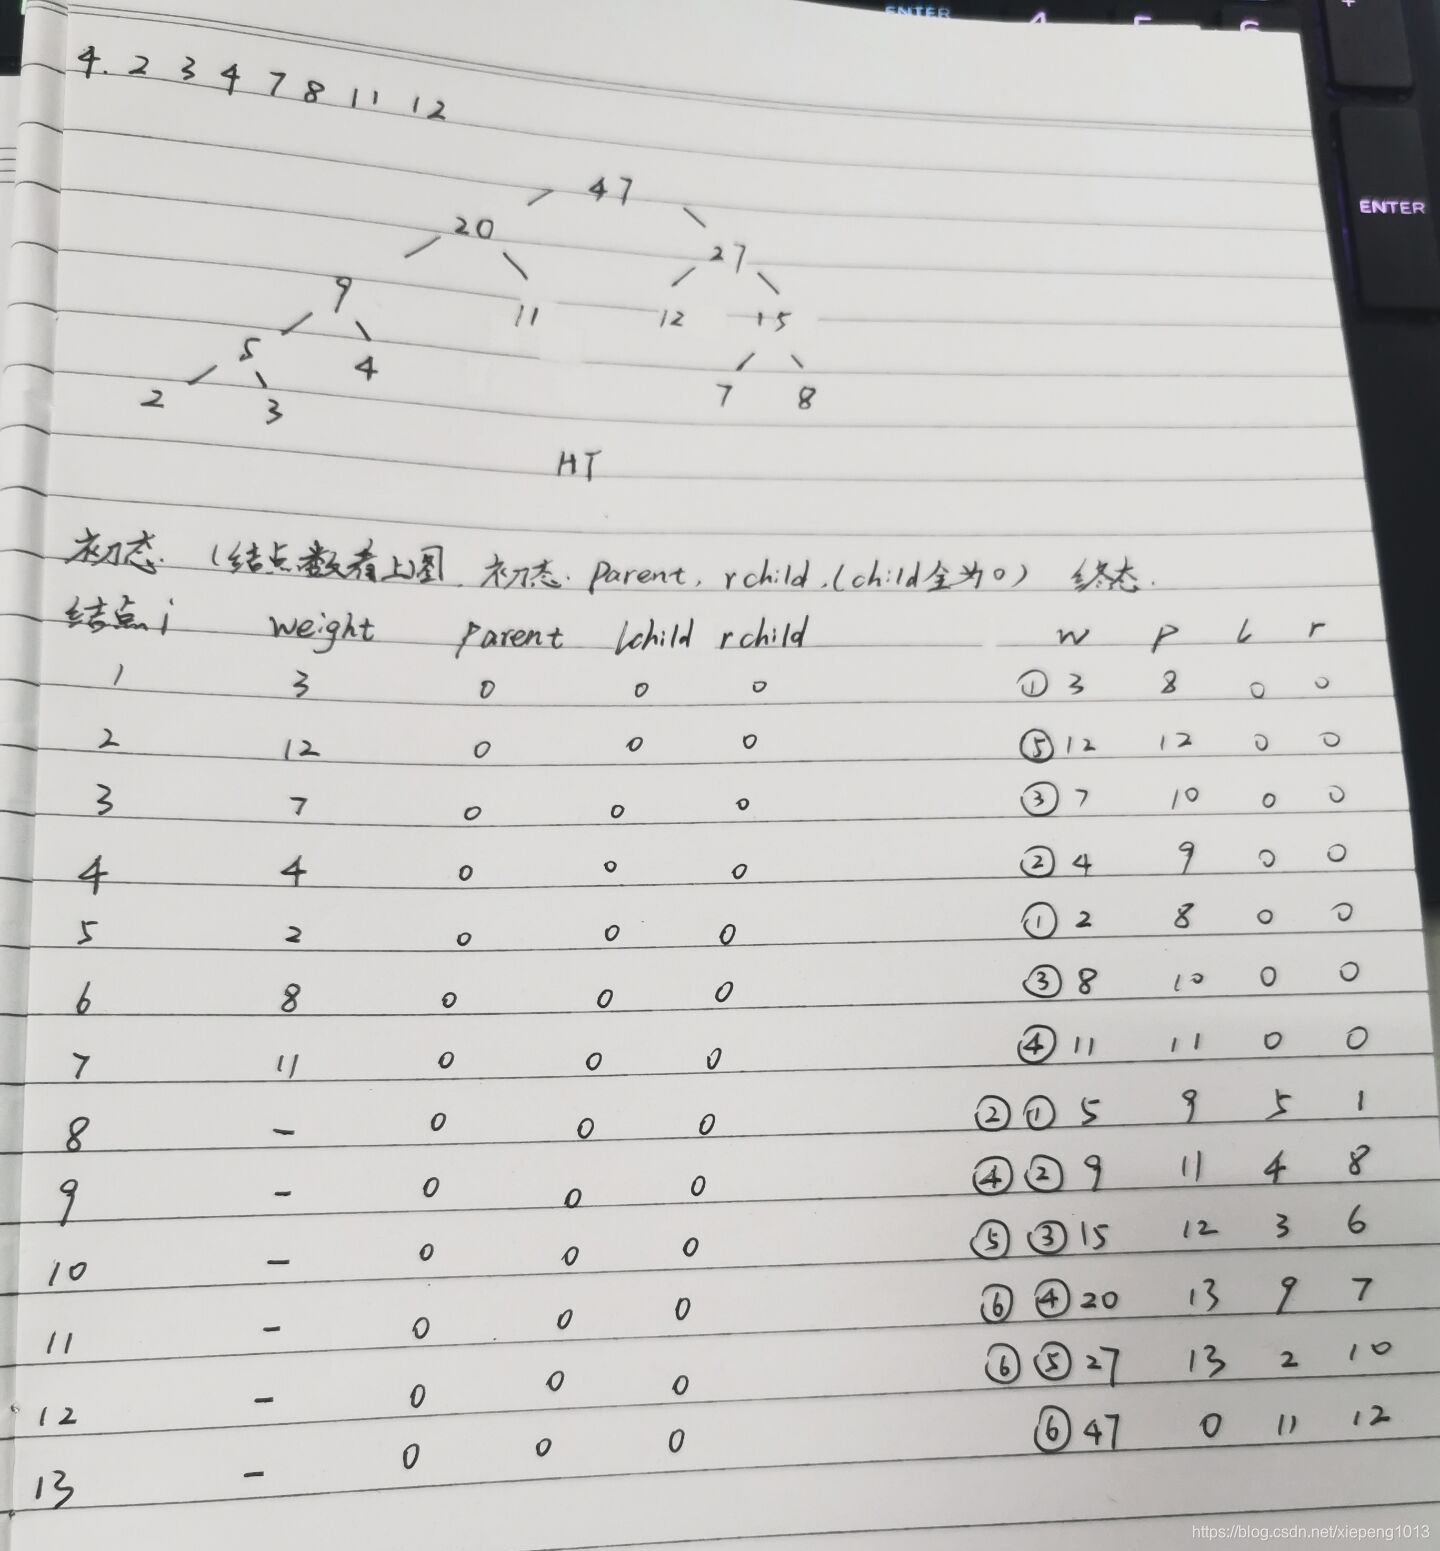 ENTER
4 5 6
+
ENTER
4. 2 3 4 7 8 11 12
47
20 27
9 11 12 15
5 4 7 8
2 3
HT
初态. (结点数看上图. 初态. parent, rchild, lchild全为0) 终态.
结点i weight parent lchild rchild w p l r
1 3 0 0 0 ① 3 8 0 0
2 12 0 0 0 ⑤ 12 12 0 0
3 7 0 0 0 ③ 7 10 0 0
4 4 0 0 0 ② 4 9 0 0
5 2 0 0 0 ① 2 8 0 0
6 8 0 0 0 ③ 8 10 0 0
7 11 0 0 0 ④ 11 11 0 0
8 - 0 0 0 ② ① 5 9 5 1
9 - 0 0 0 ④ ② 9 11 4 8
10 - 0 0 0 ⑤ ③ 15 12 3 6
11 - 0 0 0 ⑥ ④ 20 13 9 7
12 - 0 0 0 ⑥ ⑤ 27 13 2 10
13 - 0 0 0 ⑥ 47 0 11 12
https://blog.csdn.net/xiepeng1013